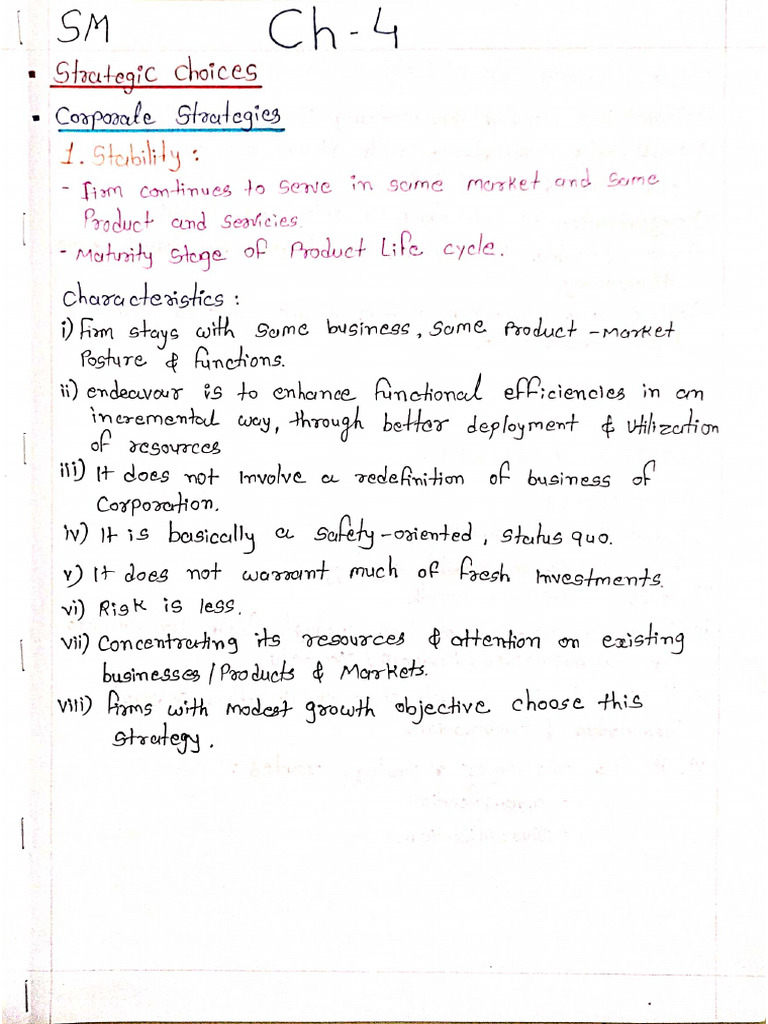 SM Ch-4
▪ Strategic Choices
▪ Corporate Strategies
1. Stability :
- Firm continues to serve in same market and same
Product and Servicies.
- Maturity Stage of Product Life cycle.
Characteristics :
i) Firm stays with same business, same Product - Market
Posture & functions.
ii) endeavour is to enhance functional efficiencies in an
incremental way, through better deployment & utilization
of resources
iii) It does not involve a redefinition of business of
Corporation.
iv) It is basically a safety-oriented, status quo.
v) It does not warrant much of fresh Investments.
vi) Risk is less.
vii) Concentrating its resources & attention on existing
businesses/Products & Markets.
viii) firms with modest growth objective choose this
strategy.